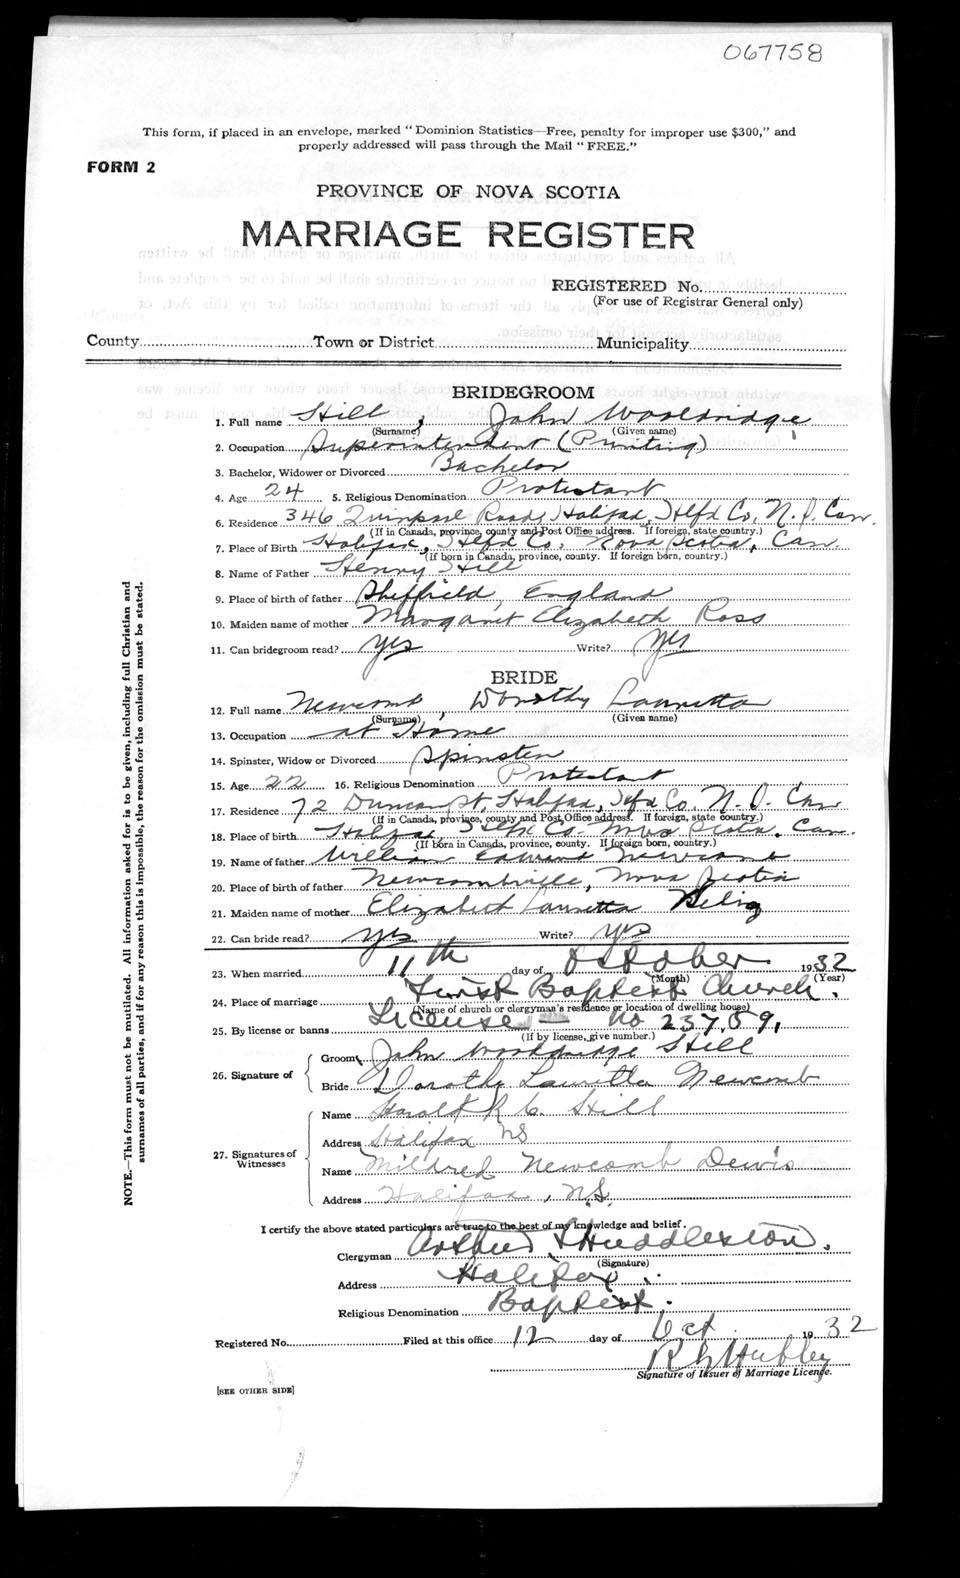 067758
This form, if placed in an envelope, marked "Dominion Statistics—Free, penalty for improper use $300," and
properly addressed will pass through the Mail "FREE."
FORM 2
PROVINCE OF NOVA SCOTIA
MARRIAGE REGISTER
REGISTERED No.
(For use of Registrar General only)
County Town or District Municipality
BRIDEGROOM
1. Full name Hill, John Wooldridge
(Surname) (Given name)
2. Occupation Superintendent (Printing)
3. Bachelor, Widower or Divorced Bachelor
4. Age 24 5. Religious Denomination Protestant
6. Residence 346 Quinpool Road, Halifax, Hlfx Co, N.S. Can.
(If in Canada, province, county and Post Office address. If foreign, state country.)
7. Place of Birth Halifax, Hlfx Co, Nova Scotia, Can.
(If born in Canada, province, county. If foreign born, country.)
8. Name of Father Henry Hill
9. Place of birth of father Sheffield, England
10. Maiden name of mother Margaret Elizabeth Ross
11. Can bridegroom read? yes Write? yes
BRIDE
12. Full name Newcomb, Dorothy Lauretta
(Surname) (Given name)
13. Occupation at Home
14. Spinster, Widow or Divorced Spinster
15. Age 22 16. Religious Denomination Protestant
17. Residence 72 Duncan St, Halifax, Hlfx Co. N.S. Can
(If in Canada, province, county and Post Office address. If foreign, state country.)
18. Place of birth Halifax, Hlfx Co. Nova Scotia. Can.
(If born in Canada, province, county. If foreign born, country.)
19. Name of father William Edward Newcomb
20. Place of birth of father Newcombville, Nova Scotia
21. Maiden name of mother Elizabeth Lauretta
22. Can bride read? yes Write? yes
23. When married 11th day of October 1932
(Month) (Year)
24. Place of marriage First Baptist Church.
(Name of church or clergyman's residence or location of dwelling house)
25. By license or banns License — No 23759,
(If by license, give number.)
26. Signature of Groom John Wooldridge Hill
Bride Dorothy Lauretta Newcomb
27. Signatures of Witnesses Name Harold R C Hill
Address Halifax NS
Name Mildred Newcomb Dewis
Address Halifax, N.S.
I certify the above stated particulars are true to the best of my knowledge and belief.
Clergyman Arthur Huddleston.
(Signature)
Address Halifax.
Religious Denomination Baptist.
Registered No. Filed at this office 12 day of Oct 1932
R G Hubley
Signature of Issuer of Marriage License.
[SEE OTHER SIDE]
NOTE.—This form must not be mutilated. All information asked for is to be given, including full Christian and
surnames of all parties, and if for any reason this is impossible, the reason for the omission must be stated.